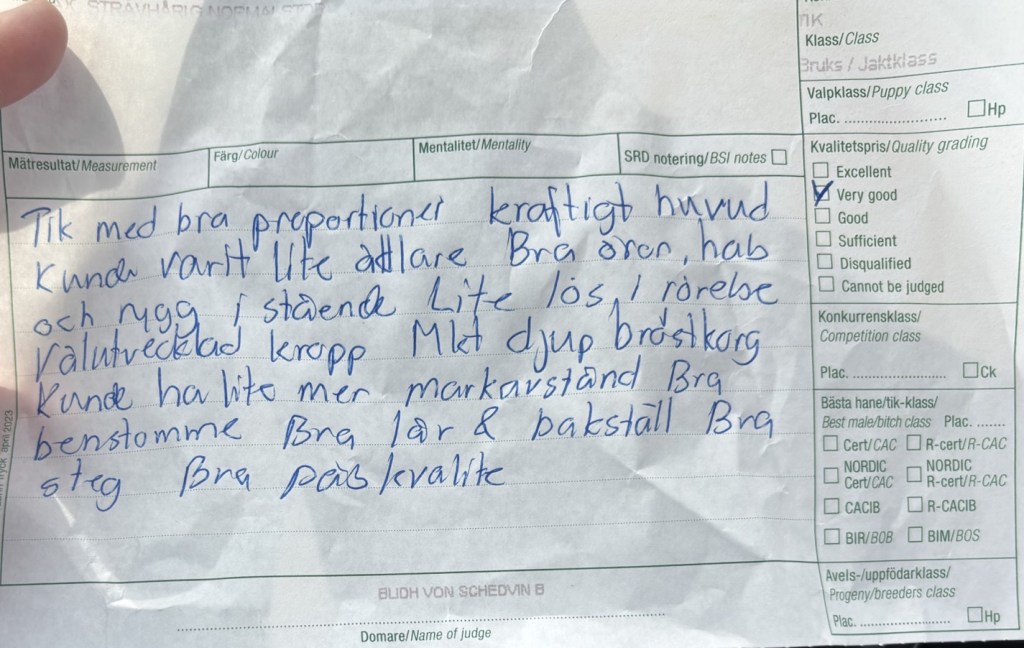 STRÄVHÅRIG NORMALSTOR
Klass/Class
Bruks / Jaktklass
Valpklass/Puppy class
Plac. ........................ Hp
Mätresultat/Measurement Färg/Colour Mentalitet/Mentality SRD notering/BSI notes
Kvalitetspris/Quality grading
Excellent
Very good
Good
Sufficient
Disqualified
Cannot be judged
Tik med bra proportioner kraftigt huvud
Kunde varit lite ädlare Bra öron, hals
och rygg i stående Lite lös i rörelse
Välutvecklad kropp Mkt djup bröstkorg
Kunde ha lite mer markavstånd Bra
benstomme Bra lår & bakställ Bra
steg Bra päls kvalite
Konkurrensklass/
Competition class
Plac. ........................ Ck
Bästa hane/tik-klass/
Best male/bitch class Plac. .......
Cert/CAC R-cert/R-CAC
NORDIC Cert/CAC NORDIC R-cert/R-CAC
CACIB R-CACIB
BIR/BOB BIM/BOS
Avels-/uppfödarklass/
Progeny/breeders class
Plac. ........................ Hp
april 2023
BLIDH VON SCHEDVIN B
Domare/Name of judge